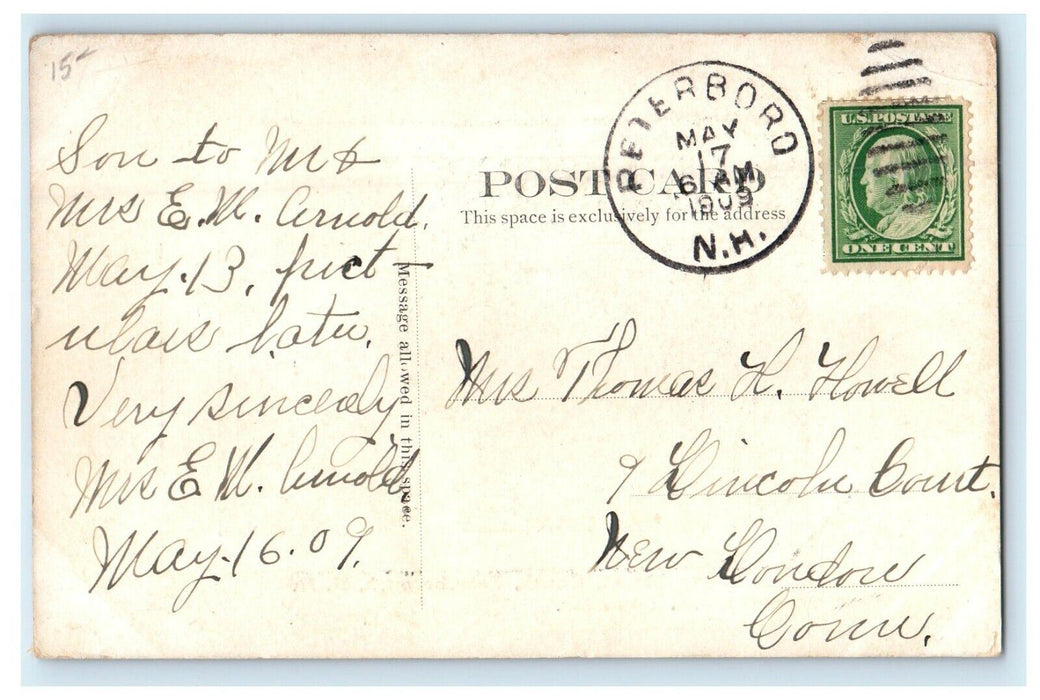 15-
Son to Mr &
Mrs E. W. Arnold.
May. 13, pict-
ulars later.
Very sincerely
Mrs E. W. Arnold
May. 16. 09.
POST CARD
This space is exclusively for the address
Message allowed in this space.
PETERBORO
MAY
17
6 AM
1909
N.H.
U.S. POSTAGE
ONE CENT
Mrs Thomas H. Howell
9 Lincoln Court.
New London
Conn.